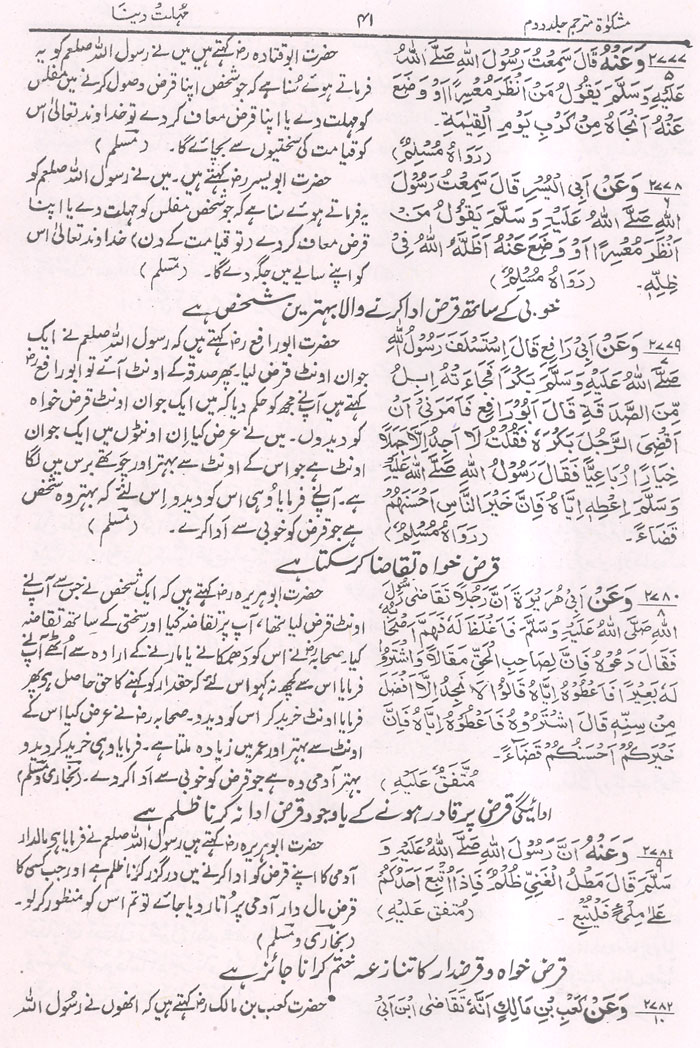 مشکوٰۃ مترجم جلد دوم
۴۱
مہلت دینا
۲۷۷۷/۵ وَعَنْهُ قَالَ سَمِعْتُ رَسُوْلَ اللهِ صَلَّى اللهُ
عَلَيْهِ وَسَلَّمَ يَقُوْلُ مَنْ اَنْظَرَ مُعْسِرًا اَوْ وَضَعَ
عَنْهُ اَنْجَاهُ مِنْ كُرَبِ يَوْمِ الْقِيٰمَةِ۔
(رَوَاهُ مُسْلِمٌ)
حضرت ابو قتادہ رضؓ کہتے ہیں میں نے رسول اللہ صلعم کو یہ
فرماتے ہوئے سُنا ہے کہ جو شخص اپنا قرض وصول کرنے میں مفلس
کو مہلت دے یا اپنا قرض معاف کر دے تو خداوند تعالیٰ اس
کو قیامت کی سختیوں سے بچائے گا۔ (مسلم)
۲۷۷۸/۶ وَعَنْ اَبِي الْيُسْرِ قَالَ سَمِعْتُ رَسُوْلَ
اللهِ صَلَّى اللهُ عَلَيْهِ وَسَلَّمَ يَقُوْلُ مَنْ
اَنْظَرَ مُعْسِرًا اَوْ وَضَعَ عَنْهُ اَظَلَّهُ اللهُ فِيْ
ظِلِّهٖ۔ (رَوَاهُ مُسْلِمٌ)
حضرت ابو یسر رضؓ کہتے ہیں۔ میں نے رسول اللہ صلعم کو
یہ فرماتے سنا ہے کہ جو شخص مفلس کو مہلت دے یا اپنا
قرض معاف کر دے (تو قیامت کے دن) خداوند تعالیٰ اس
کو اپنے سایے میں جگہ دے گا۔ (مسلم)
خوبی کے ساتھ قرض ادا کرنے والا بہترین شخص ہے
۲۷۷۹/۷ وَعَنْ اَبِيْ رَافِعٍ قَالَ اسْتَسْلَفَ رَسُوْلُ اللهِ
صَلَّى اللهُ عَلَيْهِ وَسَلَّمَ بَكْرًا فَجَاءَتْهُ اِبِلٌ
مِّنَ الصَّدَقَةِ قَالَ اَبُوْ رَافِعٍ فَاَمَرَنِيْ اَنْ
اَقْضِيَ الرَّجُلَ بَكْرَهٗ فَقُلْتُ لَا اَجِدُ اِلَّا جَمَلًا
خِيَارًا رُبَاعِيًّا فَقَالَ رَسُوْلُ اللهِ صَلَّى اللهُ عَلَيْهِ
وَسَلَّمَ اَعْطِهٖ اِيَّاهُ فَاِنَّ خَيْرَ النَّاسِ اَحْسَنُهُمْ
قَضَاءً۔ (رَوَاهُ مُسْلِمٌ)
حضرت ابو رافع رضؓ کہتے ہیں کہ رسول اللہ صلعم نے ایک
جوان اونٹ قرض لیا۔ پھر صدقے کے اونٹ آئے تو ابو رافع رضؓ
کہتے ہیں آپؐ نے مجھ کو حکم دیا کہ میں ایک جوان اونٹ قرض خواہ
کو دیدوں۔ میں نے عرض کیا ان اونٹوں میں ایک جوان
اونٹ ہے جو اس کے اونٹ سے بہتر اور چوتھے برس میں لگا
ہے۔ آپؐ نے فرمایا وُہی اس کو دیدو اس لئے کہ بہتر وہ شخص
ہے جو قرض کو خوبی سے ادا کرے۔ (مسلم)
قرض خواہ تقاضا کر سکتا ہے
۲۷۸۰/۸ وَعَنْ اَبِيْ هُرَيْرَةَ اَنَّ رَجُلًا تَقَاضٰى رَسُوْلَ
اللهِ صَلَّى اللهُ عَلَيْهِ وَسَلَّمَ فَاَغْلَظَ لَهٗ فَهَمَّ اَصْحَابُهٗ
فَقَالَ دَعُوْهُ فَاِنَّ لِصَاحِبِ الْحَقِّ مَقَالًا وَاشْتَرُوْا
لَهٗ بَعِيْرًا فَاَعْطُوْهُ اِيَّاهُ قَالُوْا لَا نَجِدُ اِلَّا اَفْضَلَ
مِنْ سِنِّهٖ قَالَ اشْتَرُوْهُ فَاَعْطُوْهُ اِيَّاهُ فَاِنَّ
خَيْرَكُمْ اَحْسَنُكُمْ قَضَاءً۔
(مُتَّفَقٌ عَلَيْهِ)
حضرت ابو ہریرہ رضؓ کہتے ہیں کہ ایک شخص نے جس سے آپؐ نے
اونٹ قرض لیا تھا، آپ پر تقاضہ کیا اور سختی کے ساتھ تقاضہ
کیا۔ صحابہؓ نے اس کو دھمکانے یا مارنے کے ارادہ سے اُٹھے آپؐ
فرمایا اس سے کچھ نہ کہو اس لئے کہ حقدار کو کہنے کا حق حاصل ہے پھر
فرمایا اونٹ خرید کر اس کو دیدو۔ صحابہ رضؓ نے عرض کیا اس کے
اونٹ سے بہتر اور عمر میں زیادہ ملتا ہے۔ فرمایا وہی خرید کر دیدو
بہتر آدمی وہ ہے جو قرض کو خوبی سے ادا کر دے۔ (بخاری ومسلم)
ادائیگی قرض پر قادر ہونے کے باوجود قرض ادا نہ کرنا ظلم ہے
۲۷۸۱/۹ وَعَنْهُ اَنَّ رَسُوْلَ اللهِ صَلَّى اللهُ عَلَيْهِ وَ
سَلَّمَ قَالَ مَطْلُ الْغَنِيِّ ظُلْمٌ فَاِذَا اُتْبِعَ اَحَدُكُمْ
عَلٰى مَلِيْءٍ فَلْيَتْبَعْ۔ (مُتَّفَقٌ عَلَيْهِ)
حضرت ابو ہریرہ رضؓ کہتے ہیں رسول اللہ صلعم نے فرمایا ہے مالدار
آدمی کا اپنے قرض کو ادا کرنے میں درگزر کرنا ظلم ہے اور جب کسی کا
قرض مال دار آدمی پر اُتار دیا جائے تو تم اس کو منظور کر لو۔
(بخاری ومسلم)
قرض خواہ و قرضدار کا تنازعہ ختم کرانا جائز ہے
۲۷۸۲/۱۰ وَعَنْ كَعْبِ بْنِ مَالِكٍ اَنَّهٗ تَقَاضٰى ابْنَ اَبِيْ
حضرت کعب بن مالک رضؓ کہتے ہیں کہ انھوں نے رسُول اللہ